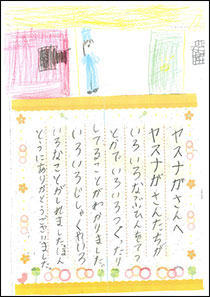 ヤスナがさんへ
ヤスナがさんたちが
いろいろなぶひんをつ
とかでいろいろつくったり
してることがわかりました。
いろいろじしゃくれいしろ
いろなことがしれました。ほん
とうにありがとうございました。